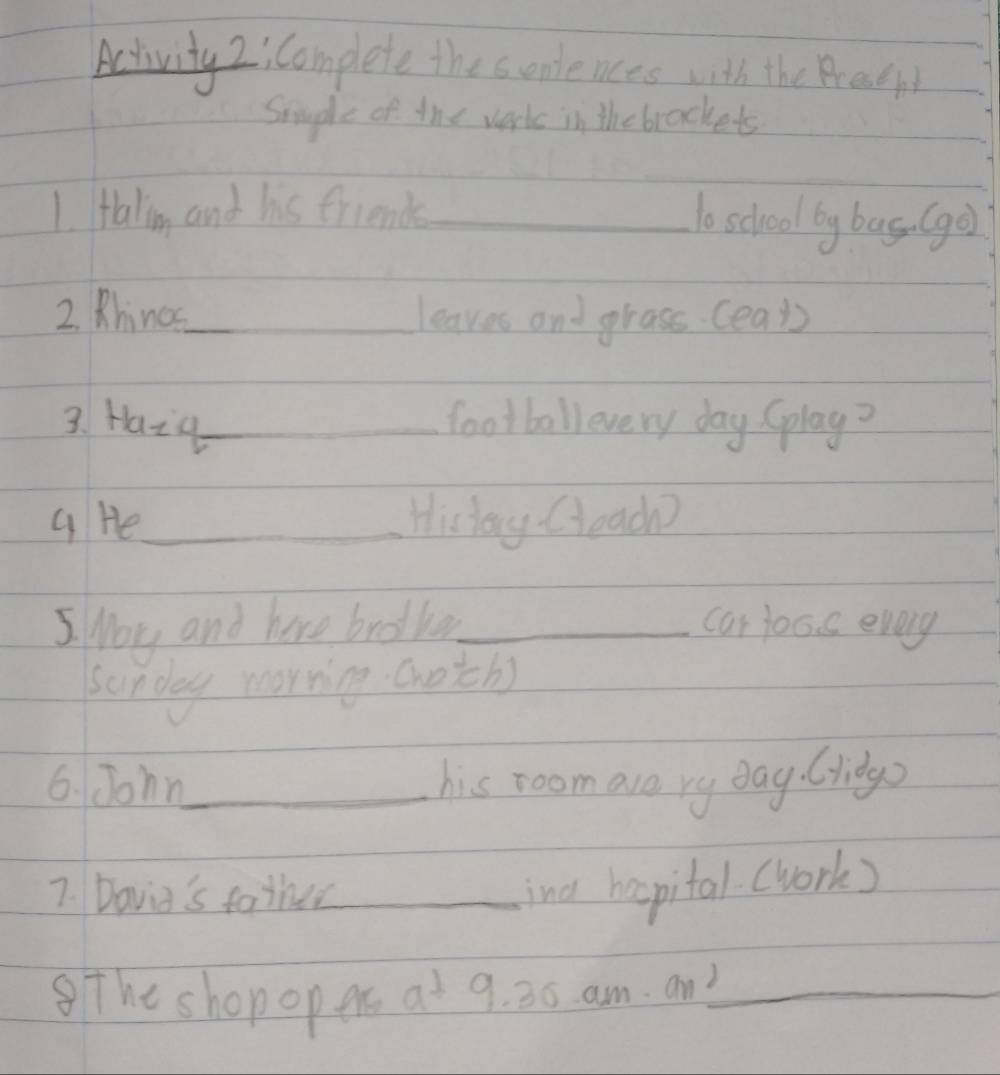 Activity 2: Complete the sentences with the Present
Simple of the verbs in the brackets
1. Halim and his friends__________to school by bus. (go)
2. Rhinos__________leaves and grass. (eat)
3. Haziq__________football every day (play)
4 He__________History. (teach)
5. Mary and here brother__________cartoos every
Sunday morning. (watch)
6. John__________his room avery day. (tidy)
7. David's father__________in a hospital. (work)
8 The shop opens at 9.30 am. and__________